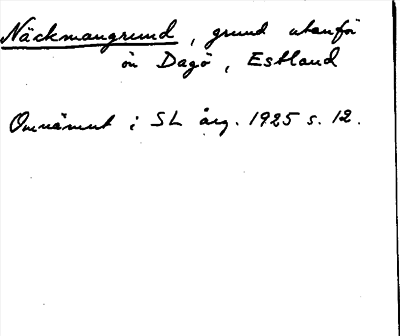 Näckmangrund, grund utanför
ön Dagö, Estland
Omnämnt i SL årg. 1925 s. 12.